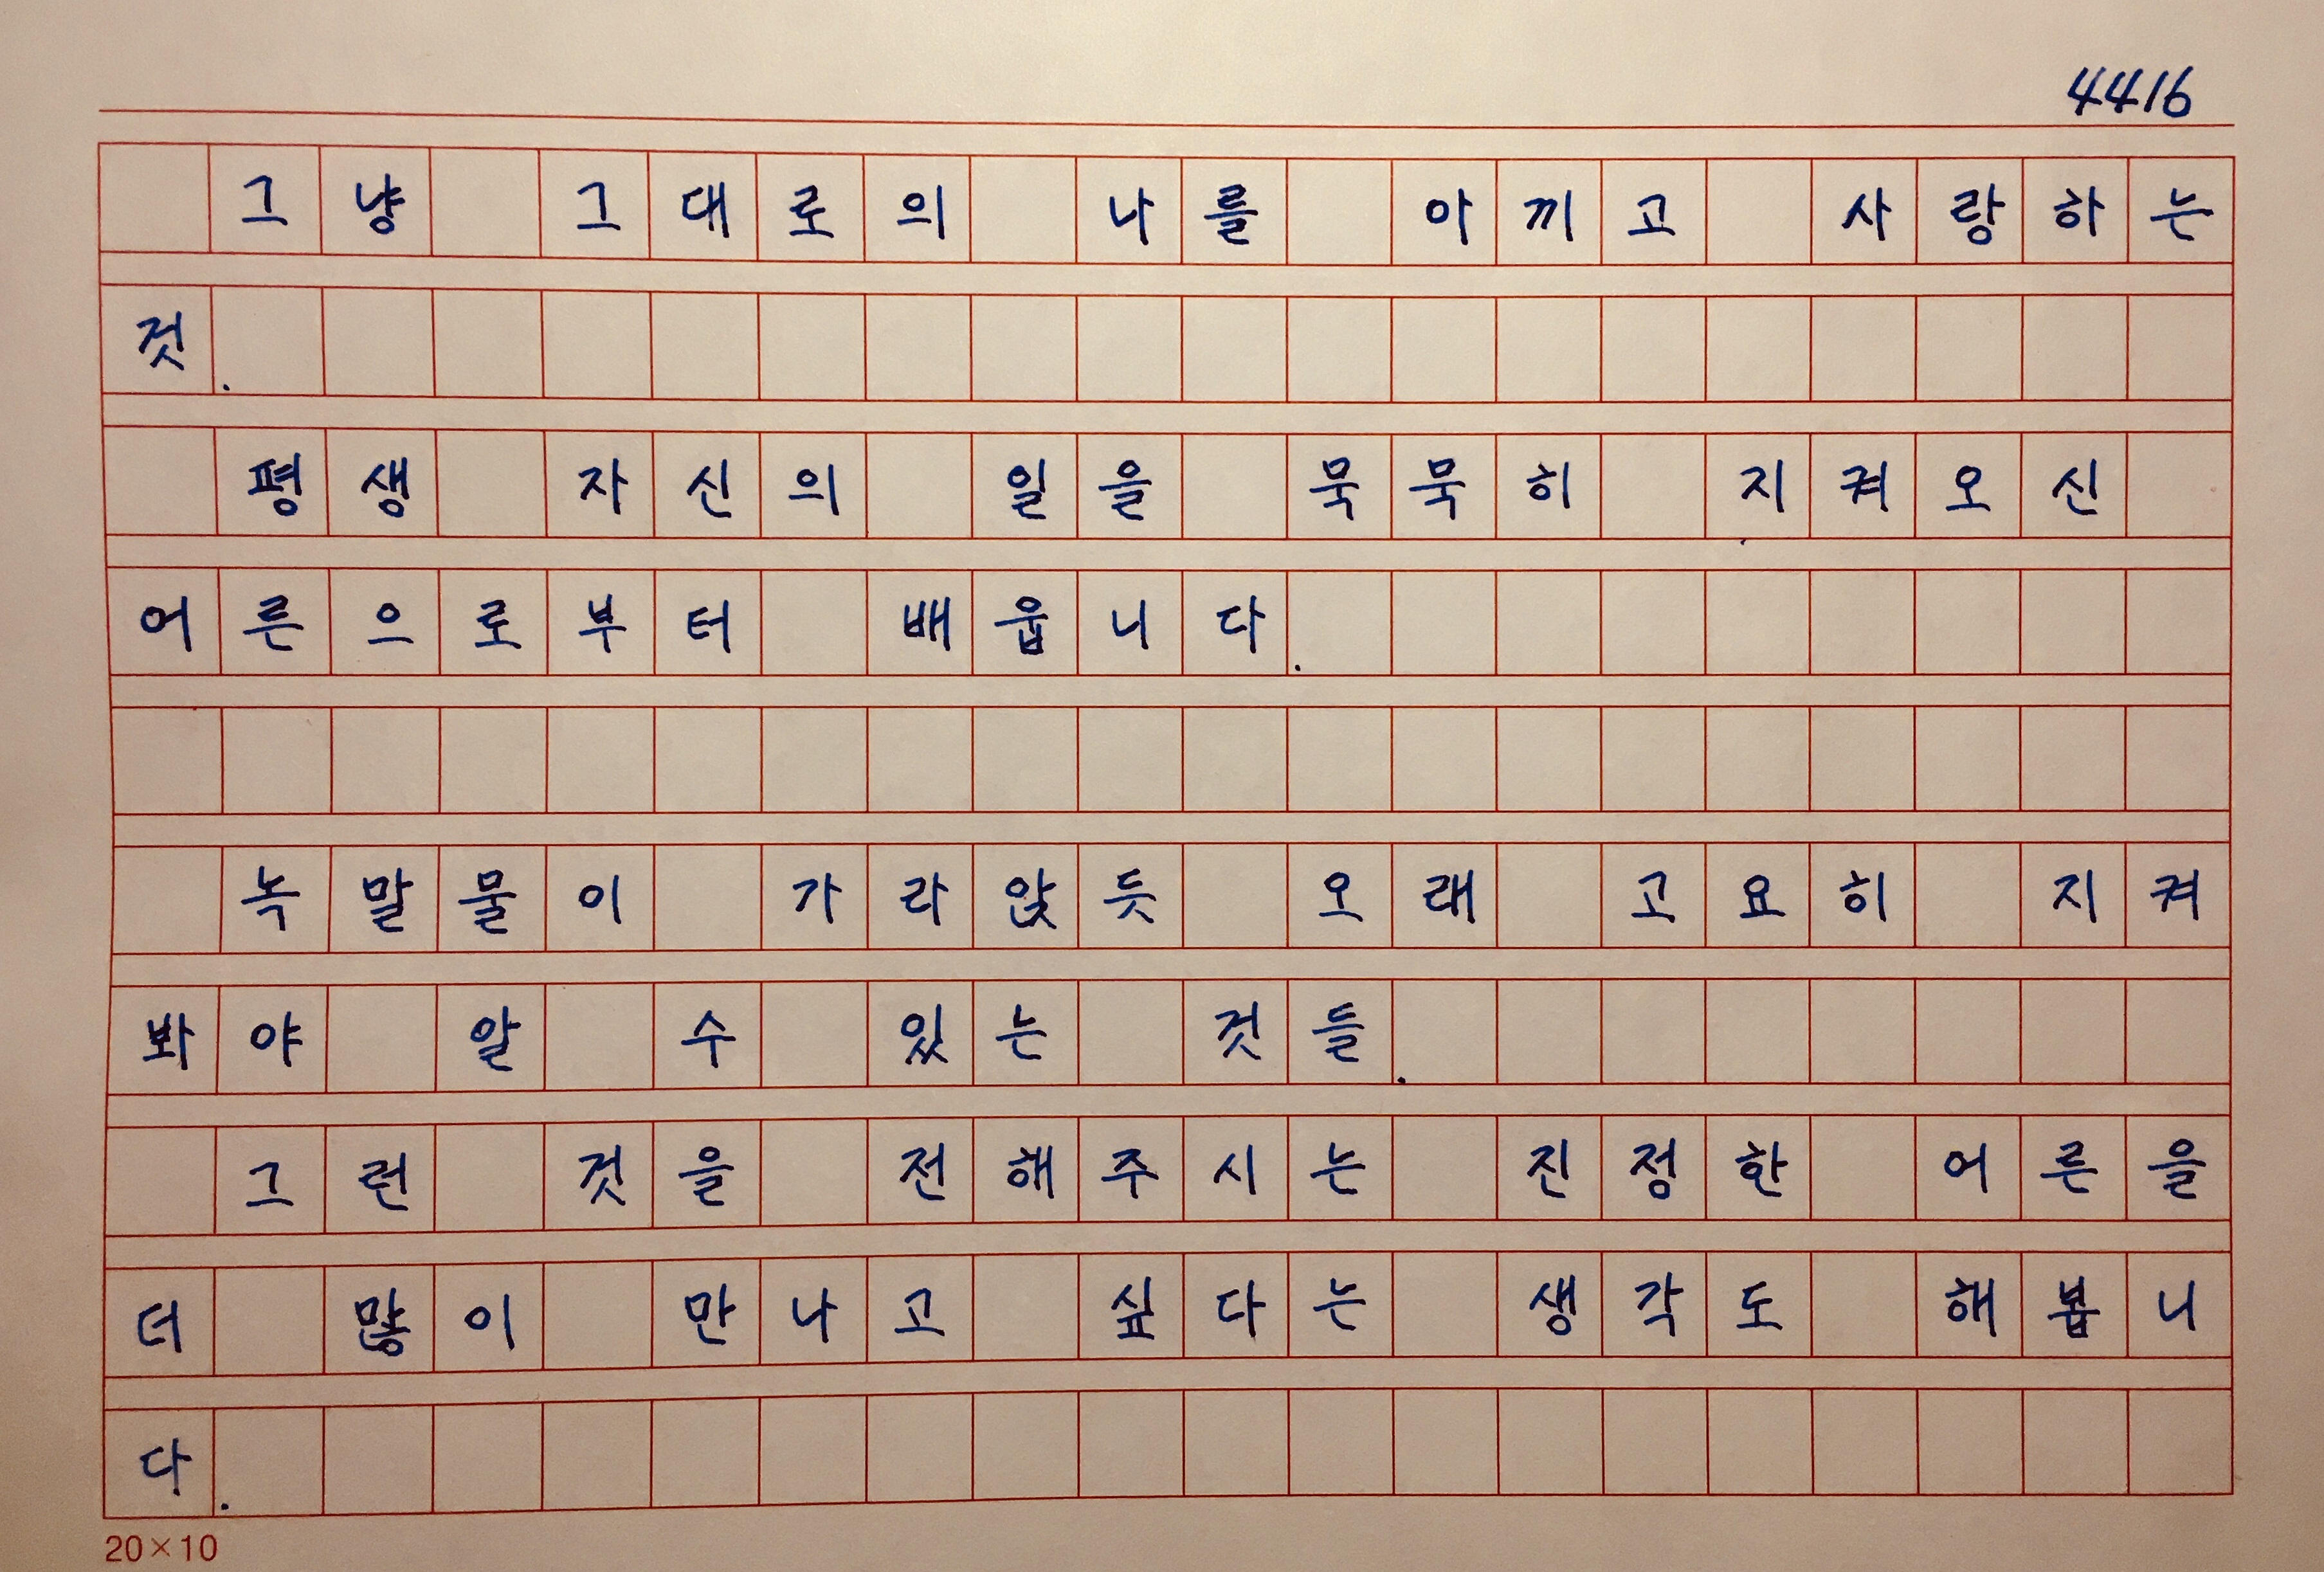 4416
그냥 그대로의 나를 아끼고 사랑하는
것.
평생 자신의 일을 묵묵히 지켜오신
어른으로부터 배웁니다.
녹말물이 가라앉듯 오래 고요히 지켜
봐야 알 수 있는 것들.
그런 것을 전해주시는 진정한 어른을
더 많이 만나고 싶다는 생각도 해봅니
다.
20×10